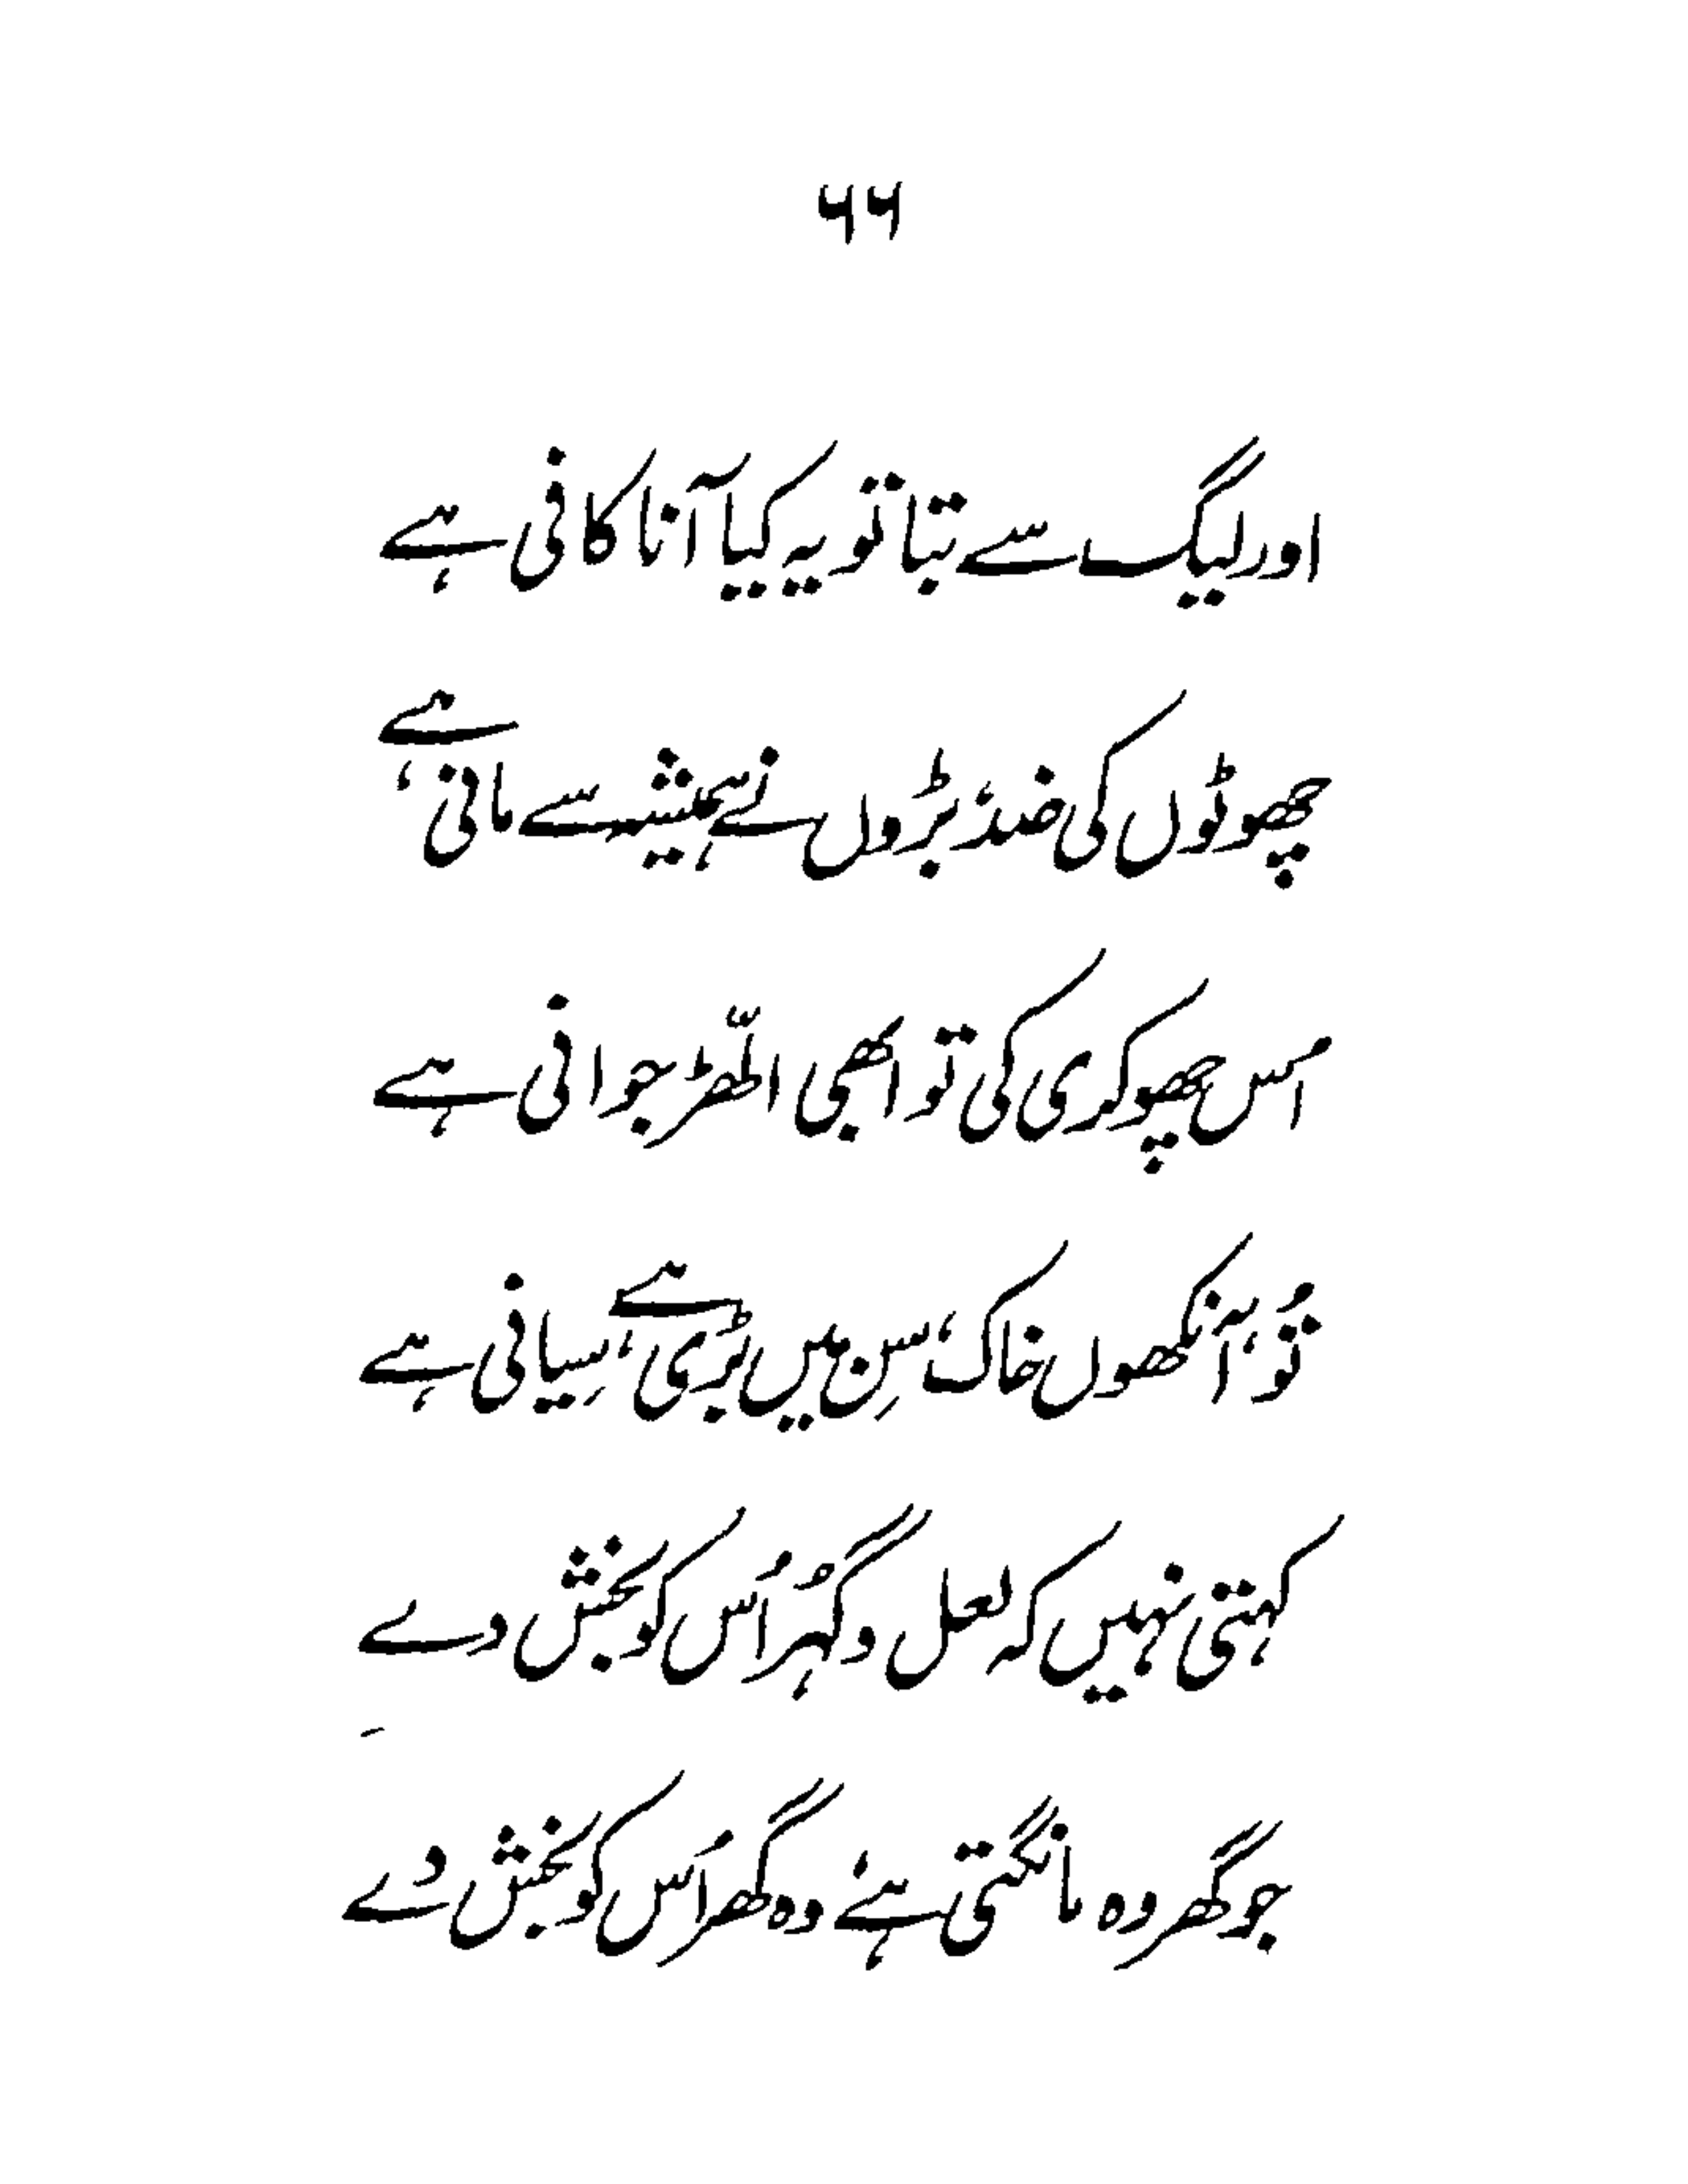 ۶۶
اور لیگ سے تبا تو یہ کیا آنا کافی ہے
چھوٹوں کی ضد، بڑوں نے ہمیشہ سے مانی ہے،
اس چھوکری کی تو ابھی الھڑّ جوانی ہے
تُو، آنکھوں خاک، سِن میں بڑی ہے، سِیانی ہے
کہتی نہیں کہ لعل و گہر اُس کو بخش دے
جو گھر وہ مانگتی ہے، وہ گھر اُس کو بخش دے